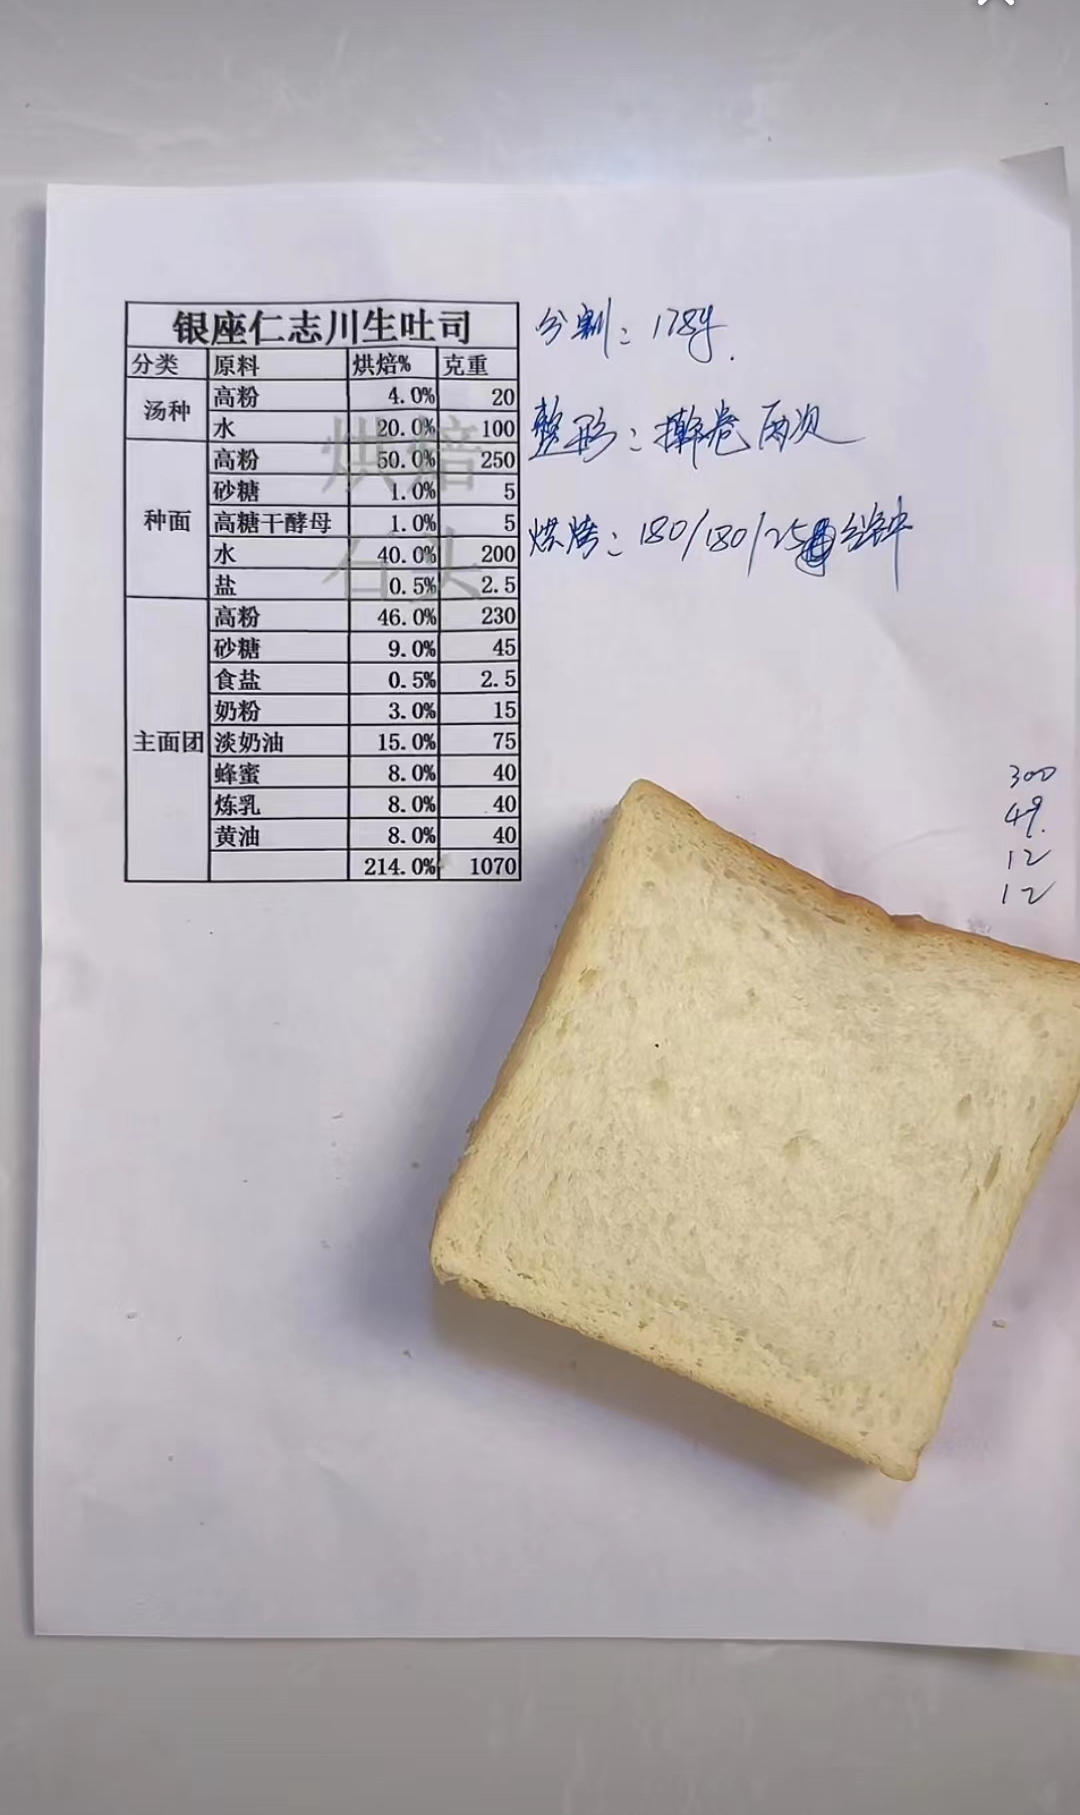 银座仁志川生吐司
分类 原料 烘焙% 克重
汤种 高粉 4.0% 20
水 20.0% 100
种面 高粉 50.0% 250
砂糖 1.0% 5
高糖干酵母 1.0% 5
水 40.0% 200
盐 0.5% 2.5
主面团 高粉 46.0% 230
砂糖 9.0% 45
食盐 0.5% 2.5
奶粉 3.0% 15
淡奶油 15.0% 75
蜂蜜 8.0% 40
炼乳 8.0% 40
黄油 8.0% 40
214.0% 1070
烘焙
石头
分割：178g.
整形：擀卷两次
烘烤：180/180/25分钟
300
49.
12
12